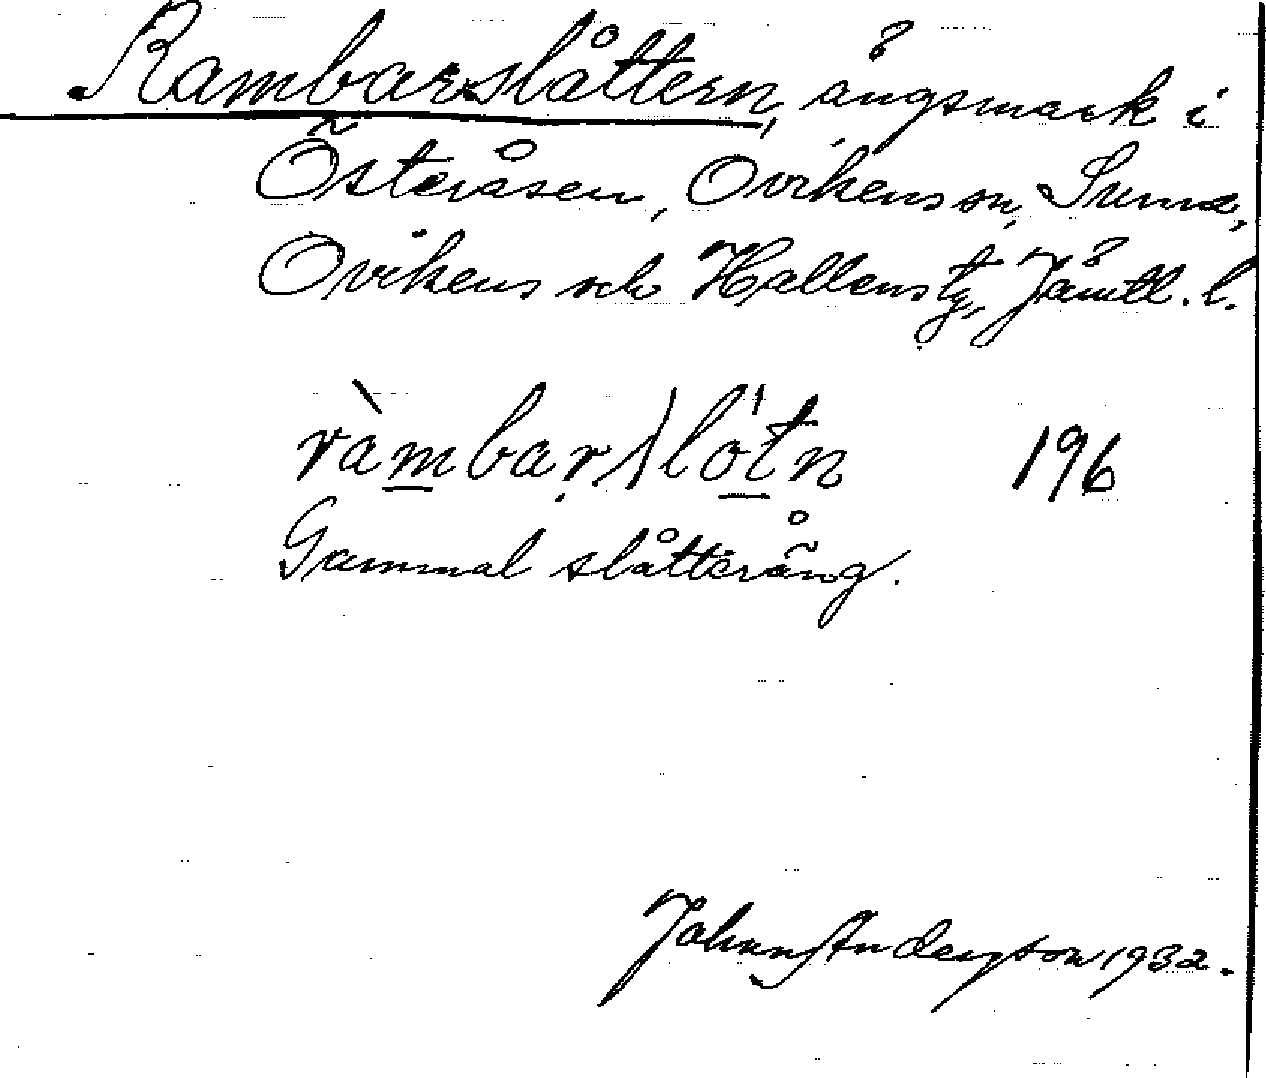 Rambarslåttern, ängsmark i
Österåsen, Ovikens sn,
Ovikens och Hallens tg, Jämtl. l.
ràmbaṛ)lo̍tn 196
Gammal slåtteräng.
Johan Andersson 1932.